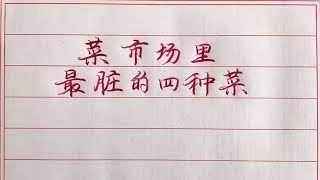 菜市场里
最脏的四种菜